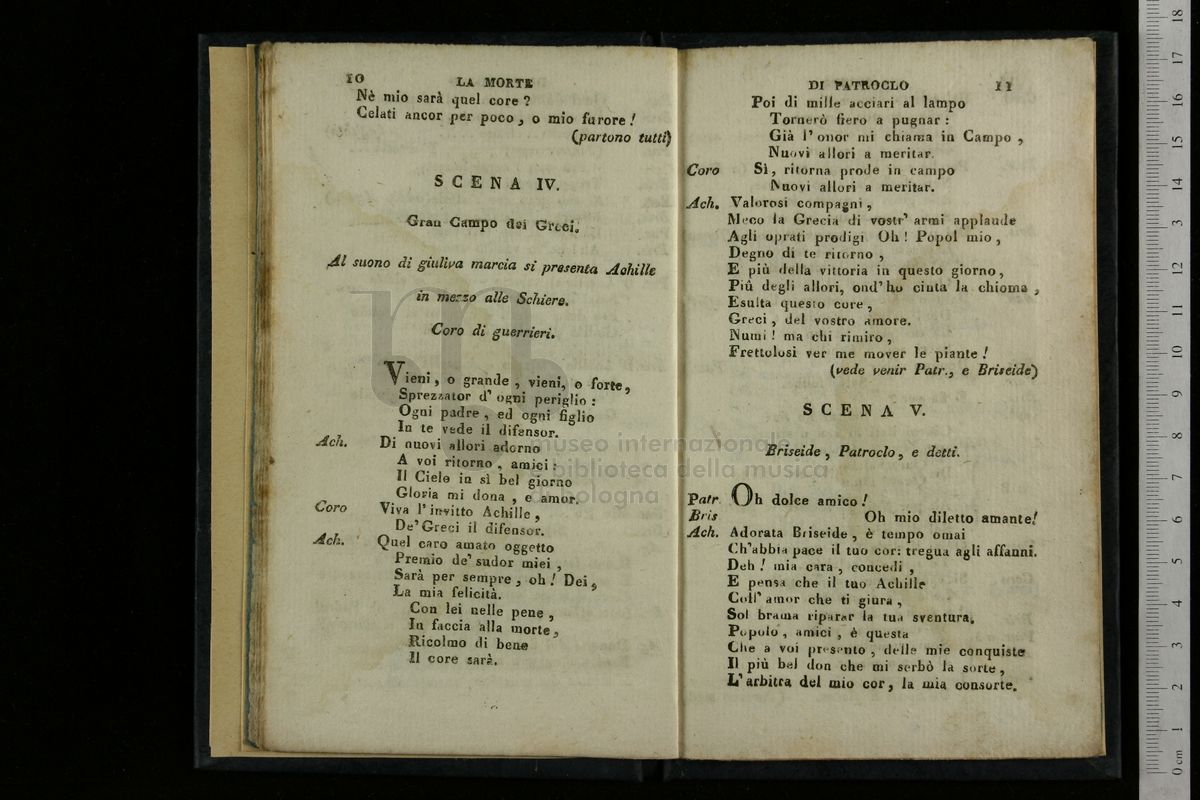 10
LA MORTE
Nè mio sarà quel core ?
Celati ancor per poco, o mio furore !
(partono tutti)
SCENA IV.
Gran Campo dei Greci.
Al suono di giuliva marcia si presenta Achille
in mezzo alle Schiere.
Coro di guerrieri.
Vieni, o grande, vieni, o forte,
Sprezzator d' ogni periglio :
Ogni padre, ed ogni figlio
In te vede il difensor.
Ach. Di nuovi allori adorno
A voi ritorno, amici :
Il Cielo in sì bel giorno
Gloria mi dona, e amor.
Coro Viva l' invitto Achille,
De' Greci il difensor.
Ach. Quel caro amato oggetto
Premio de' sudor miei,
Sarà per sempre, oh ! Dei,
La mia felicità.
Con lei nelle pene,
In faccia alla morte,
Ricolmo di bene
Il core sarà.
DI PATROCLO
11
Poi di mille acciari al lampo
Tornerò fiero a pugnar :
Già l' onor mi chiama in Campo,
Nuovi allori a meritar.
Coro Sì, ritorna prode in campo
Nuovi allori a meritar.
Ach. Valorosi compagni,
Meco la Grecia di vostr' armi applaude
Agli oprati prodigi Oh ! Popol mio,
Degno di te ritorno,
E più della vittoria in questo giorno,
Più degli allori, ond' ho cinta la chioma,
Esulta questo core,
Greci, del vostro amore.
Numi ! ma chi rimiro,
Frettolosi ver me mover le piante !
(vede venir Patr., e Briseide)
SCENA V.
Briseide, Patroclo, e detti.
Patr Oh dolce amico !
Bris Oh mio diletto amante!
Ach. Adorata Briseide, è tempo omai
Ch'abbia pace il tuo cor: tregua agli affanni.
Deh ! mia cara, concedi,
E pensa che il tuo Achille
Coll' amor che ti giura,
Sol brama riparar la tua sventura.
Popolo, amici, è questa
Che a voi presento, delle mie conquiste
Il più bel don che mi serbò la sorte,
L' arbitra del mio cor, la mia consorte.
museo internazionale
e biblioteca della musica
di bologna
0 cm 1 2 3 4 5 6 7 8 9 10 11 12 13 14 15 16 17 18